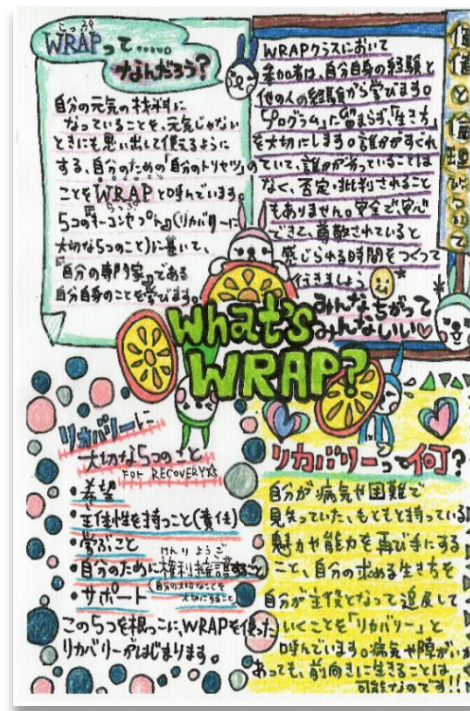 らっぷ
WRAPって……
なんだろう?
自分の元気の材料に
なっていることを、元気じゃない
ときにも思い出して使えるように
する、自分のための「自分のトリセツ」の
ことをWRAPと呼んでいます。
らっぷ
5つの『キーコンセプト』(リカバリーに
大切な5つのこと)に基いて、
『自分の専門家』である
自分自身のことを学びます。
WRAPクラスにおいて
参加者は、自分自身の経験と
他の人の経験から学びます。
『プログラム』に留まらず、『生き方』
を大切にします。誰かがすぐれ
ていて、誰かが劣っていることは
なく、否定・批判されること
もありません。安全で安心
できて、尊敬されていると
感じられる時間をつくって
行きましょう
みんなちがって
みんないい♡
What's
WRAP?
リカバリーに
大切な5つのこと
FOR RECOVERY☆
・希望
・主体性を持つこと(責任)
・学ぶこと
けんりようご
・自分のために権利擁護すること
(自分の大切なことを
大切にすること)
・サポート
この5つを根っこに、WRAPを使った
リカバリーがはじまります。
リカバリーって何?
自分が病気や困難で
見失っていた、もともと持っている
魅力や能力を再び手にする
こと、自分の求める生き方を
自分が主役となって追及して
いくことを「リカバリー」と
呼んでいます。病気や障がいが
あっても、前向きに生きることは
可能なのです!!